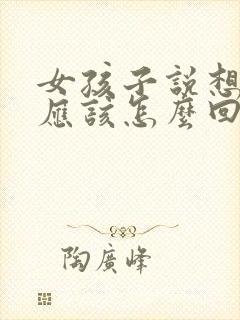 女孩子說想
應該怎麼回
陶廣峰